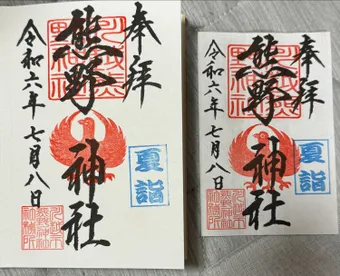 奉拝
熊野神社
令和六年七月八日
夏詣
奉拝
熊野神社
令和六年七月八日
夏詣